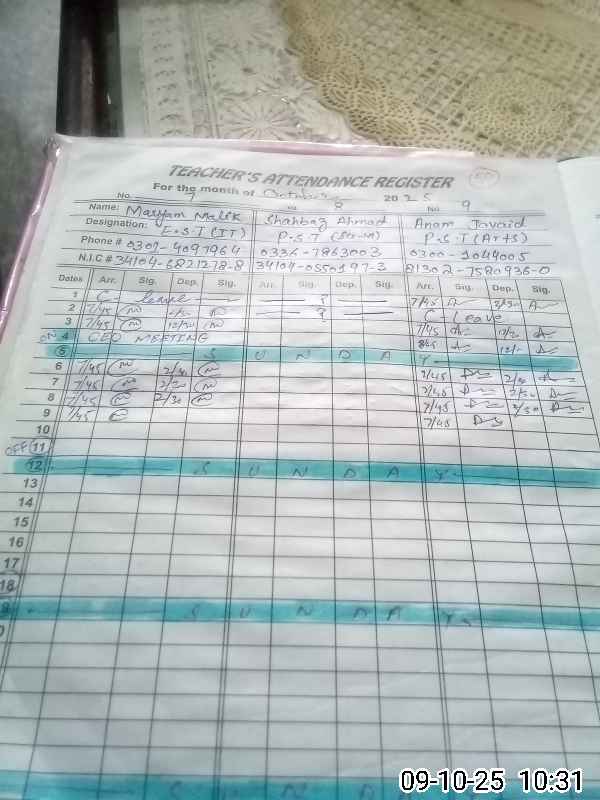 TEACHER'S ATTENDANCE REGISTER
For the month of October 2025
No. 7 No 8 No 9
Name: Maryam Malik Shahbaz Ahmad Anam Javaid
Designation: E.S.T (IT) P.S.T P.S.T (Arts)
Phone # 0309-4097964 0336-7863003 0300-1044005
N.I.C # 34104-6821278-8 34104-0550197-3 81302-7580936-0
Dates Arr. Sig. Dep. Sig. Arr. Sig. Dep. Sig. Arr. Sig. Dep. Sig.
1 C- leave ? 7/45
2 7/45 ? C-Leave
3 7/45 12/30 7/45
ON 4 CEO MEETING 8/45
5 S U N D A Y
6 7/45 2/30 7/45 2/30
7 7/45 2/30 7/45 2/30
8 7/45 2/30 7/45 2/30
9 7/45 7/45
10
OFF 11
12 S U N D A Y
13
14
15
16
17
18
9 S U N D A Y
0
S U N D A
09-10-25 10:31